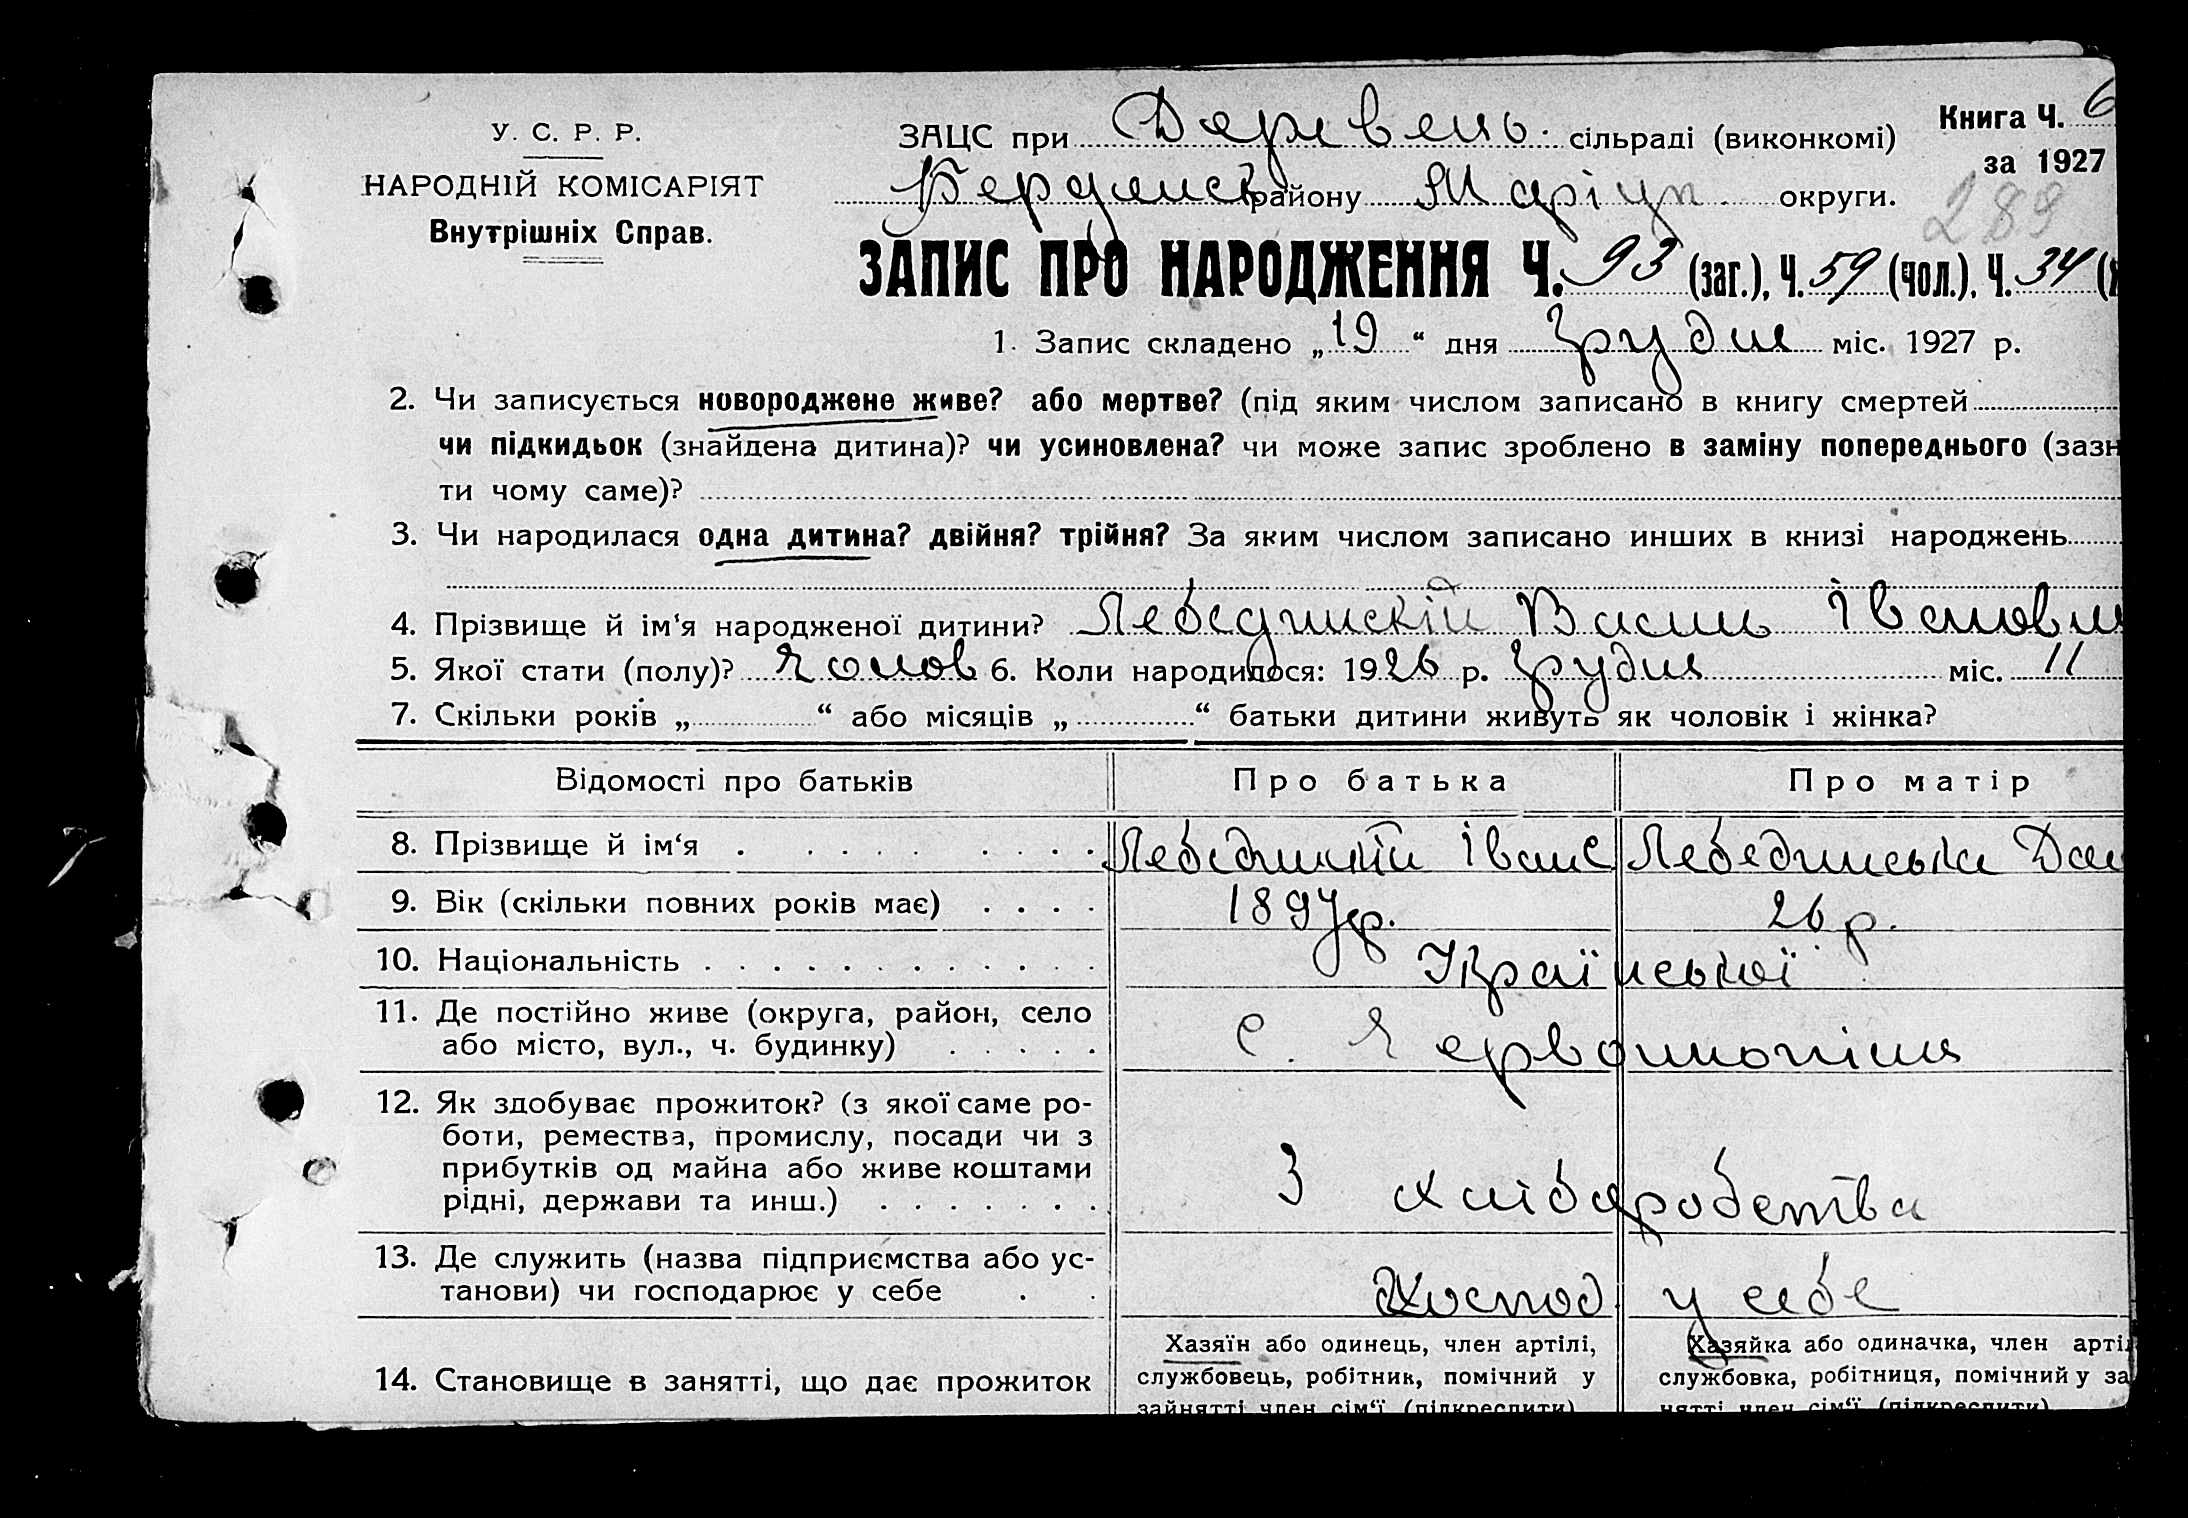 У. С. Р. Р.
НАРОДНІЙ КОМІСАРІЯТ
Внутрішніх Справ.
Книга Ч. 6
за 1927
289
ЗАЦС при сільраді (виконкомі)
Бердянськ району Маріуп. округи.
ЗАПИС ПРО НАРОДЖЕННЯ Ч. 93 (заг.), Ч. 59 (чол.), Ч. 34
1. Запис складено „19“ дня грудня міс. 1927 р.
2. Чи записується новороджене живе? або мертве? (під яким числом записано в книгу смертей
чи підкидьок (знайдена дитина)? чи усиновлена? чи може запис зроблено в заміну попереднього (зазн
ти чому саме)?
3. Чи народилася одна дитина? двійня? трійня? За яким числом записано инших в книзі народжень
4. Прізвище й ім‘я народженої дитини? Лебединскій Василь Іванови
5. Якої стати (полу)? Чолов 6. Коли народилося: 1926 р. грудня міс. 11
7. Скільки років „ “ або місяців „ “ батьки дитини живуть як чоловік і жінка?
Відомості про батьків Про батька Про матір
8. Прізвище й ім‘я Лебединскій Іван Лебединська
9. Вік (скільки повних років має) 1897 р. 26 р.
10. Національність Української
11. Де постійно живе (округа, район, село
або місто, вул., ч. будинку) с.
12. Як здобуває прожиток? (з якої саме ро-
боти, ремества, промислу, посади чи з
прибутків од майна або живе коштами
рідні, держави та инш.) З хліборобства
13. Де служить (назва підприємства або ус-
танови) чи господарює у себе Господ. у себе
14. Становище в занятті, що дає прожиток
Хазяїн або одинець, член артілі,
службовець, робітник, помічний у
зайнятті член сім‘ї (підкреслити)
Хазяйка або одиначка, член арті
службовка, робітниця, помічний у за
нятті член сім‘ї (підкреслити)